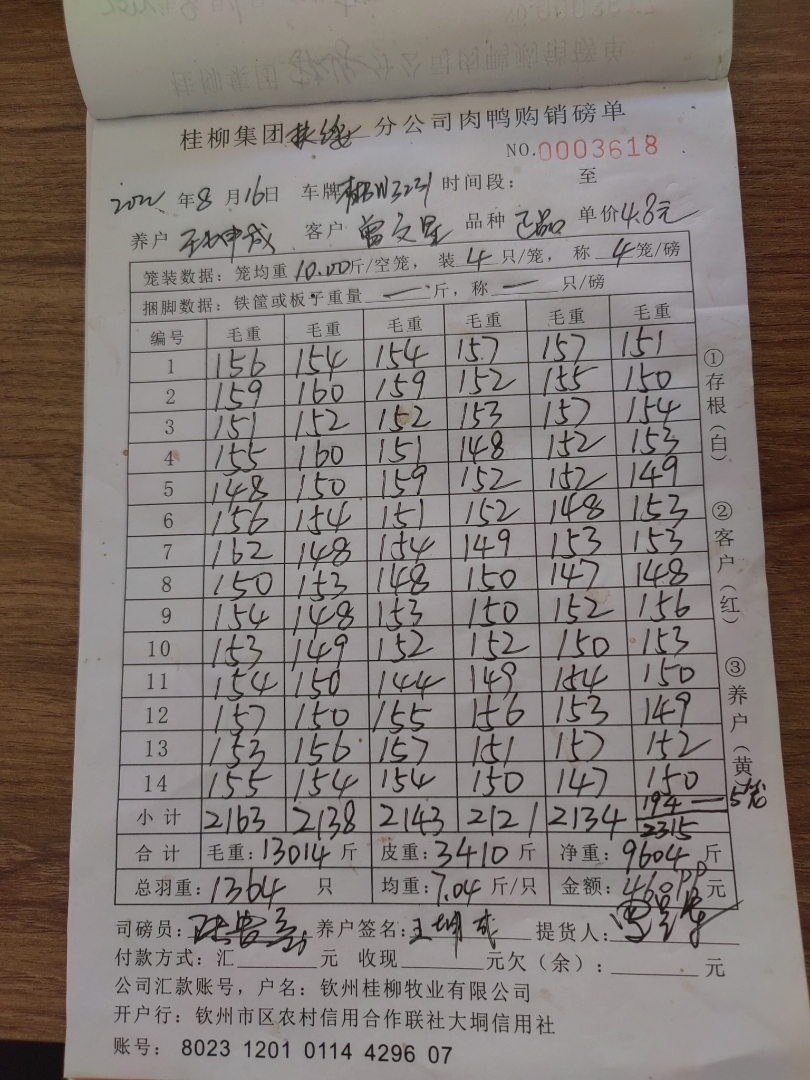 桂柳集团扶绥分公司肉鸭购销磅单
NO.0003618
2022年8月16日 车牌 时间段： 至
养户 客户 曾文星 品种 正品 单价4.8元
笼装数据：笼均重10.00斤/空笼，装4只/笼，称4笼/磅
捆脚数据：铁筐或板子重量—斤，称—只/磅
编号 毛重 毛重 毛重 毛重 毛重 毛重
1 156 154 154 157 157 151
2 159 160 159 152 155 150
3 151 152 152 153 157 154
4 155 160 151 148 152 153
5 148 150 159 152 152 149
6 156 154 151 152 148 153
7 162 148 154 149 153 153
8 150 153 148 150 147 148
9 154 148 153 150 152 156
10 153 149 152 152 150 153
11 154 150 144 149 154 150
12 157 150 155 156 153 149
13 153 156 157 151 157 152
14 155 154 154 150 147 150
194 — 5笼
小计 2163 2138 2143 2121 2134 2315
合计 毛重：13014斤 皮重：3410斤 净重：9604斤
总羽重：1364只 均重：7.04斤/只 金额：元
司磅员： 养户签名： 提货人：
付款方式：汇 元 收现 元欠（余）： 元
公司汇款账号，户名：钦州桂柳牧业有限公司
开户行：钦州市区农村信用合作联社大垌信用社
账号：8023 1201 0114 4296 07
①存根（白） ②客户（红） ③养户（黄）